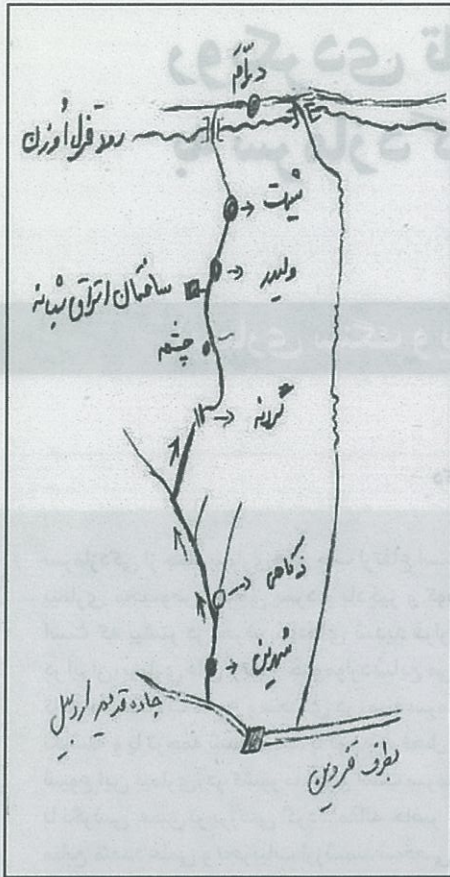 درّام
رود قزل اوزن
شیت
ولیدر
ساختمان اتراق شبانه
چشمه
گردنه
ذاکاهی
شهرین
جاده قدیم اردبیل
بطرف قزوین